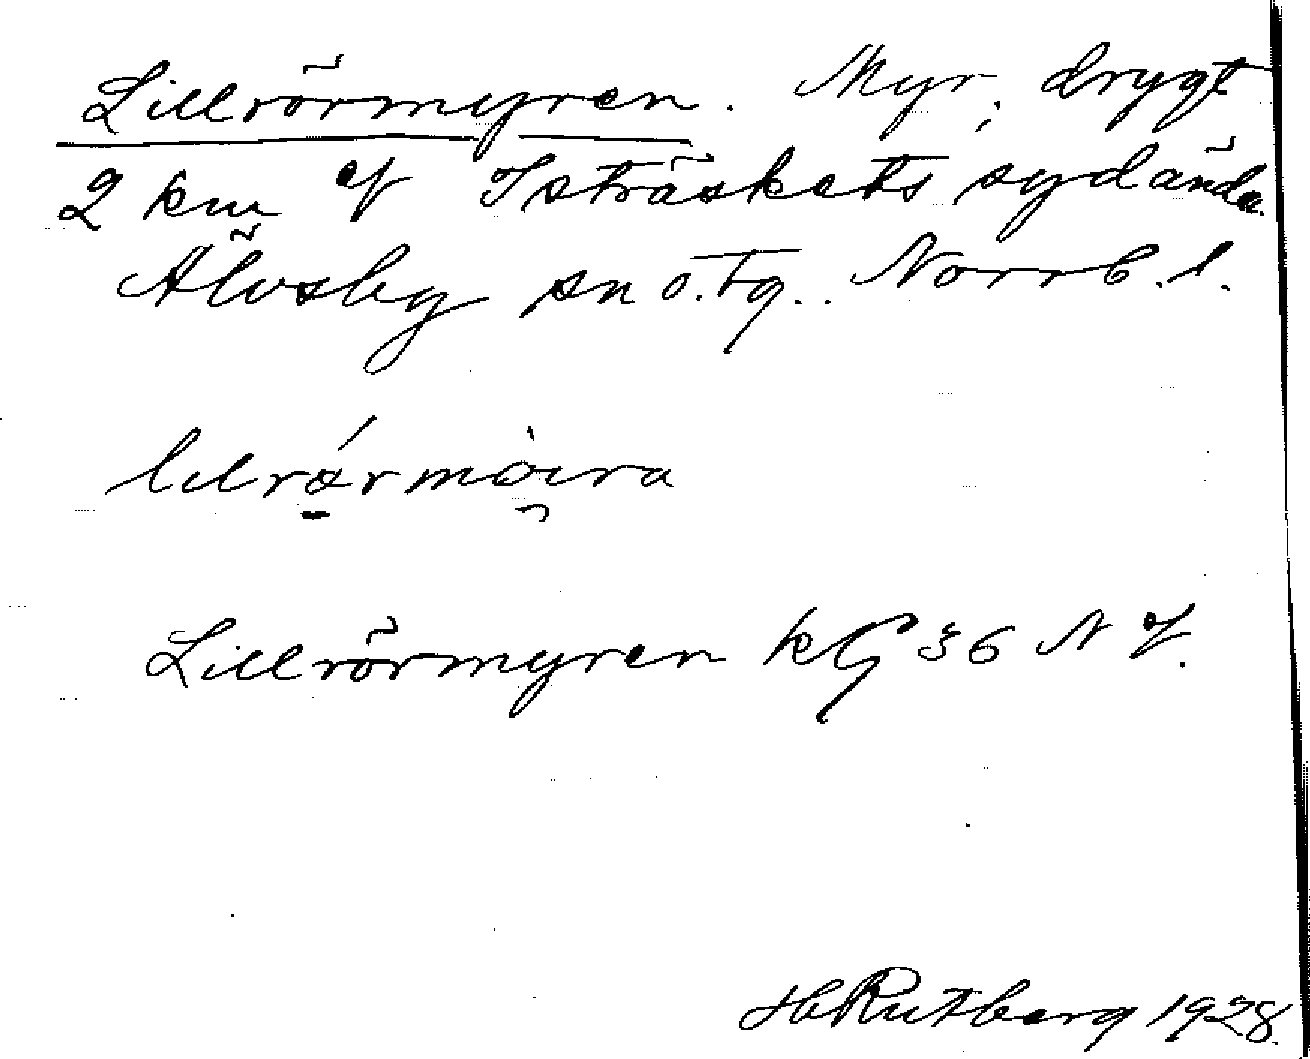 Lillrörmyren. Myr, drygt
2 km V Isträskets sydända.
Älvsby sn o. tg. Norrb. l.
Lillrörmyren kG 36 N V.
H Rutberg 1928.